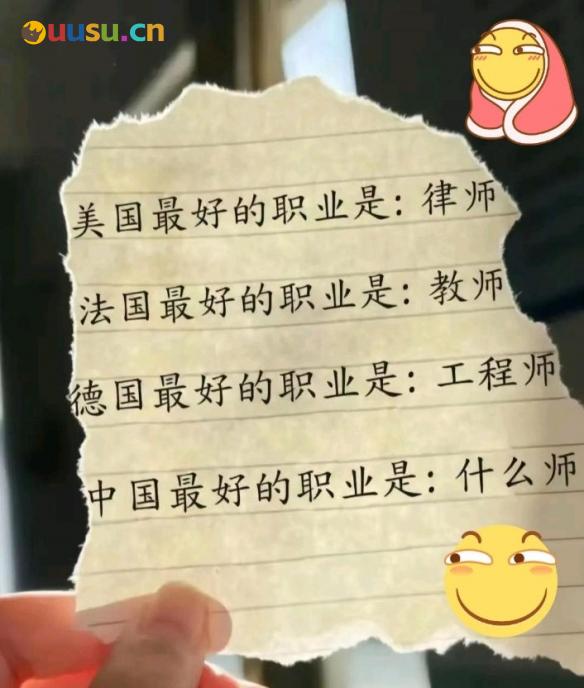 uusu.cn
美国最好的职业是：律师
法国最好的职业是：教师
德国最好的职业是：工程师
中国最好的职业是：什么师